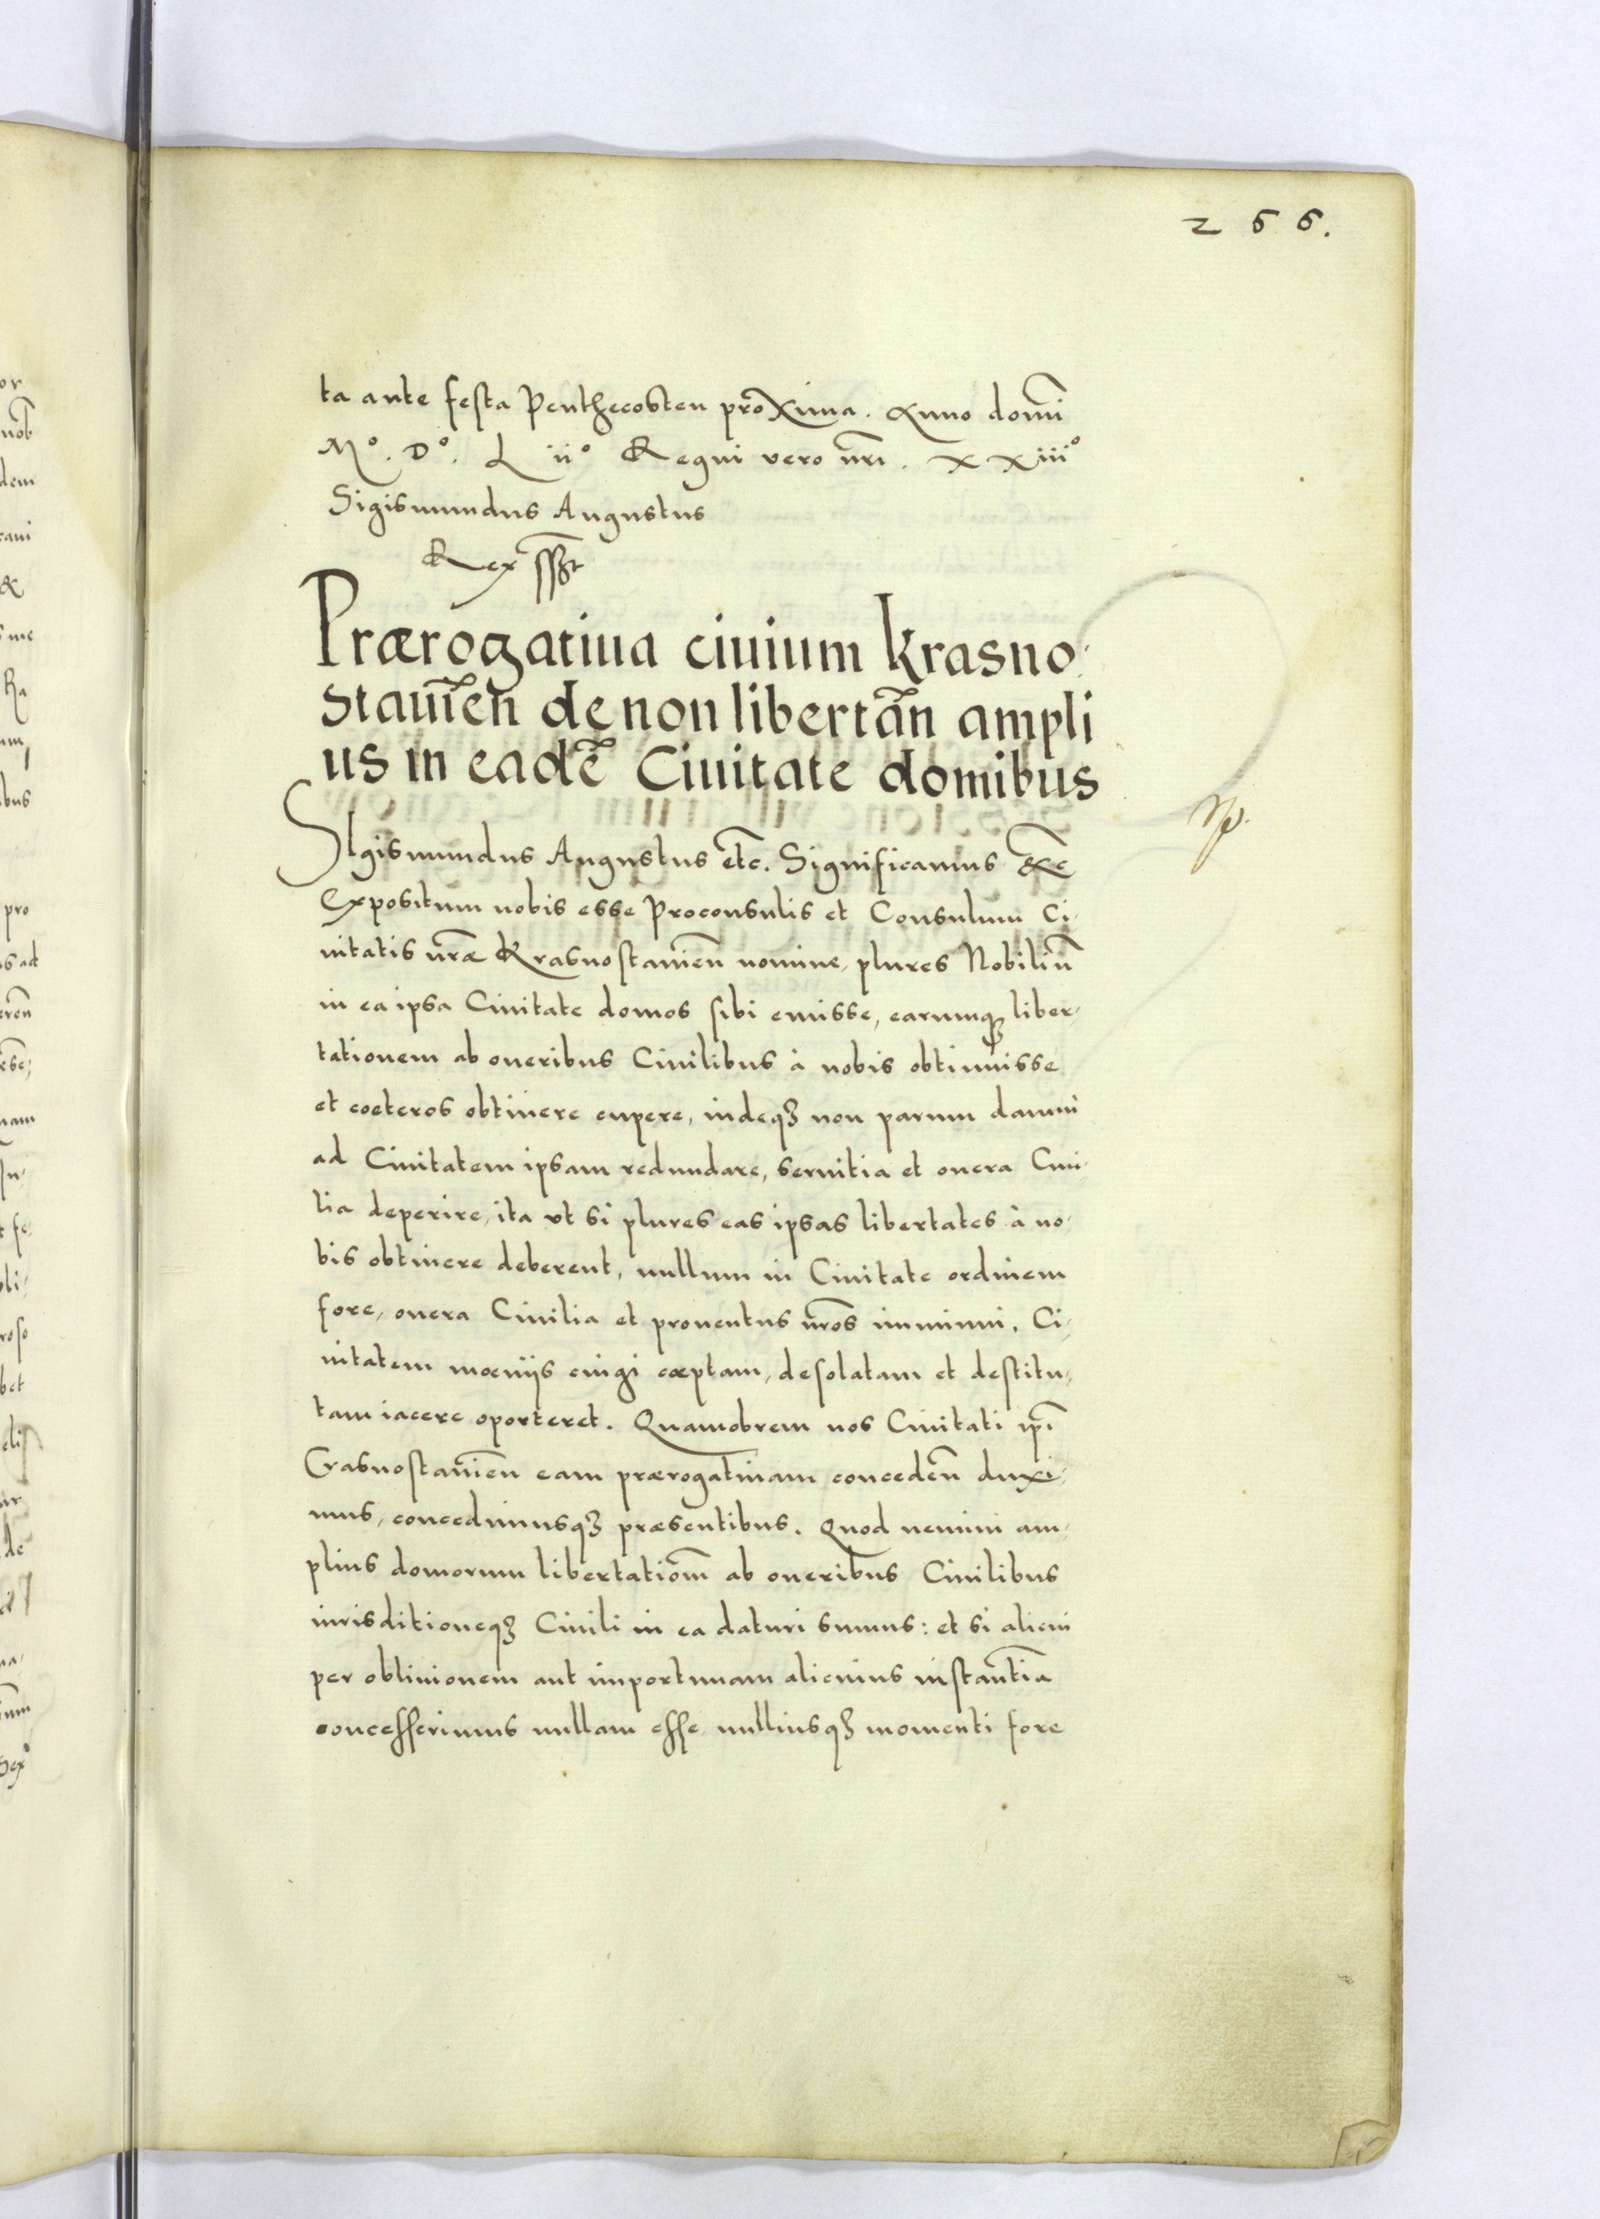 266.
ta ante festa Penthecosten proxima. Anno domi
Mº. Dº. L iiº Regni vero nri. XXiiiº
Sigismundus Augustus
Rex sst
Prærogatiua ciuium Krasno-
stauien̄ de non libertān ampli
us in eadē Ciuitate domibus
SIgismundus Augustus etc. Significamus &c
Expositum nobis esse Proconsulis et Consulum Ci-
uitatis nræ Krasnostauien̄ nomine, plures Nobiliū
in ea ipsa Ciuitate domos sibi emisse, earumqȝ liber-
tationem ab oneribus Ciuilibus à nobis obtinuisse
et coeteros obtinere cupere, indeqȝ non parum damni
ad Ciuitatem ipsam redundare, seruitia et onera Ciui-
lia deperire, ita vt si plures eas ipsas libertates à no-
bis obtinere deberent, nullum in Ciuitate ordinem
fore, onera Ciuilia et prouentus nros imminui. Ci-
uitatem mœniis cingi cœptam, desolatam et destitu-
tam iacere oporteret. Quamobrem nos Ciuitati ipī
Crasnostauien̄ eam prærogatiuam conceden̄ duxi-
mus, concedimusqȝ præsentibus. Quod nemini am-
plius domorum libertatiōm ab oneribus Ciuilibus
iurisditioneqȝ Ciuili in ea daturi sumus: et si alicui
per obliuionem aut importunam alicuius instantiā
concesserimus nullam esse nulliusqȝ momenti fore